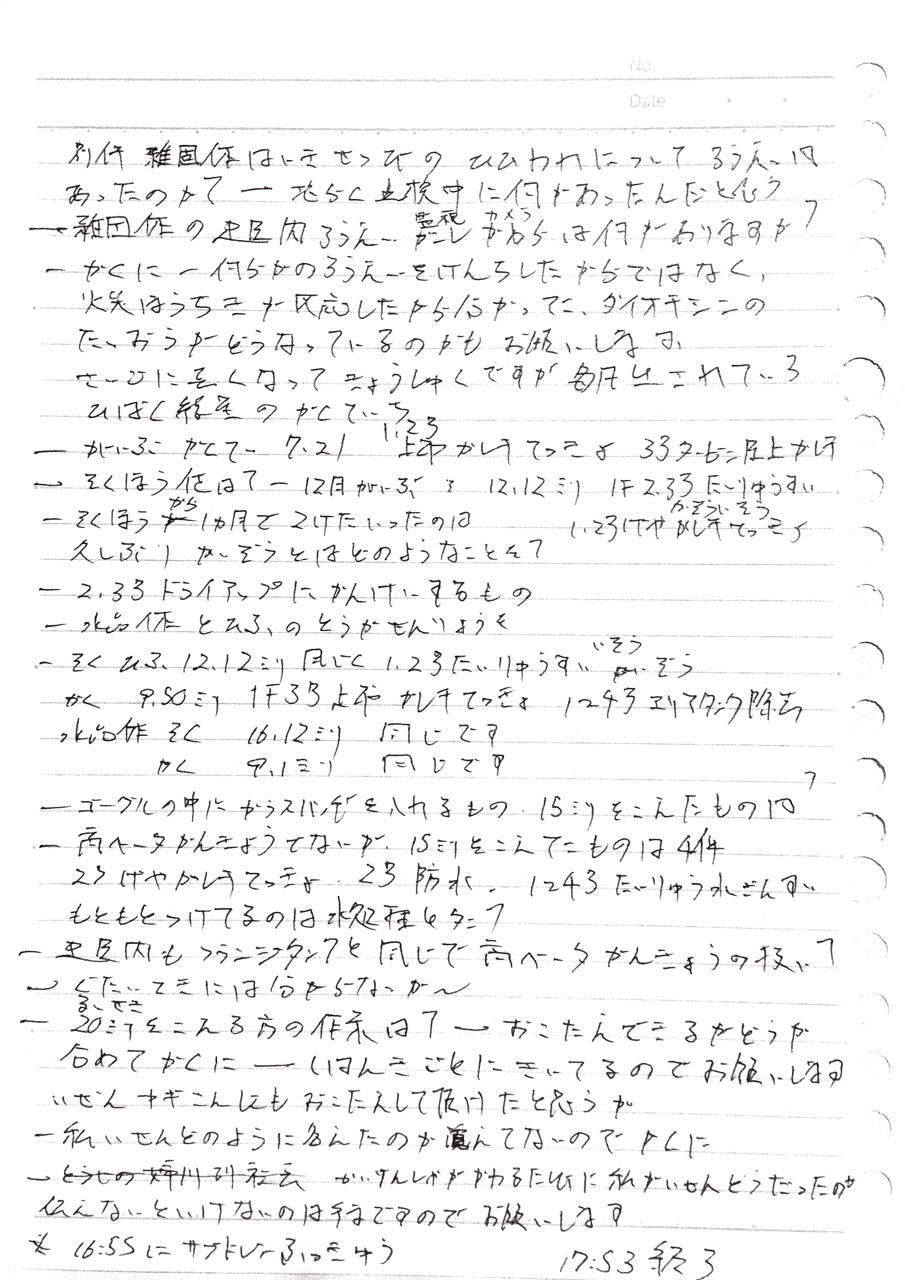 No.
Date
別件 雑固体はいきせつびの ひびわれについて ろうえーは
あったのか? ー 恐らく点検中に何かあったんだと思う
ー 雑固体の建屋内ろうえー 監視 カメラ からは何かありますか?
ー かくにー 何らかのろうえーをけんちしたからではなく、
火災ほうちきが反応したから分かってて、ダイオキシンの
たいおうがどうなっているのかもお願いします
さいごに長くなってきょうしゅくですが 毎月出されている
ひばく線量のかくていち
1.23
ー がいぶ かくてー 7.21 上部かしきてっきょ 33タービン屋上かしき
ー そくほう値は? ー 12月がいぶ 12.12ミリ 1F2.33たいりゅうすい
ー そくほうから1ヵ月で2けたいったのは かぞういそう 1.23けやかしきてっきょ
久しぶり かぞうとはどのようなことを?
ー 2.33ドライアップにかんけいするもの
ー 水晶体とひふの とうかせんりょうを
ー そく ひふ 12.12ミリ 同じく 1.23たいりゅうすい いそう
かく 9.50ミリ 1F33上部 かしきてっきょ 1243エリアタンク除去
水晶体 そく 16.12ミリ 同じです
かく 9.1ミリ 同じです
ー ゴーグルの中にガラスバッヂを入れるもの. 15ミリをこえたものは?
ー 高ベータかんきょうでないが. 15ミリをこえてたものは4件
23けやかしきてっきょ. 23防水. 1243たいりゅう水ざんすい
もともとつけてるのは水処理とタンク
ー 建屋内もフランジタンクと同じで高ベータかんきょうの扱い?
ー ぐたいてきには分からないが〜
るいせき
ー 20ミリをこえる方の作業は? ー おこたえできるかどうか
含めてかくにー ー しはんきごとにきいてるのでお願いします
いぜん ナギこんにもおこたえして頂けたと思うが
ー 私いぜんどのように答えたのか覚えてないのでかくにー
ー かいけんしゃがかわるたびに私がいぜんどうだったのか
伝えないといけないのは手までですのでお願いします
※ 16:55にサブドレンふっきゅう 17:53終了